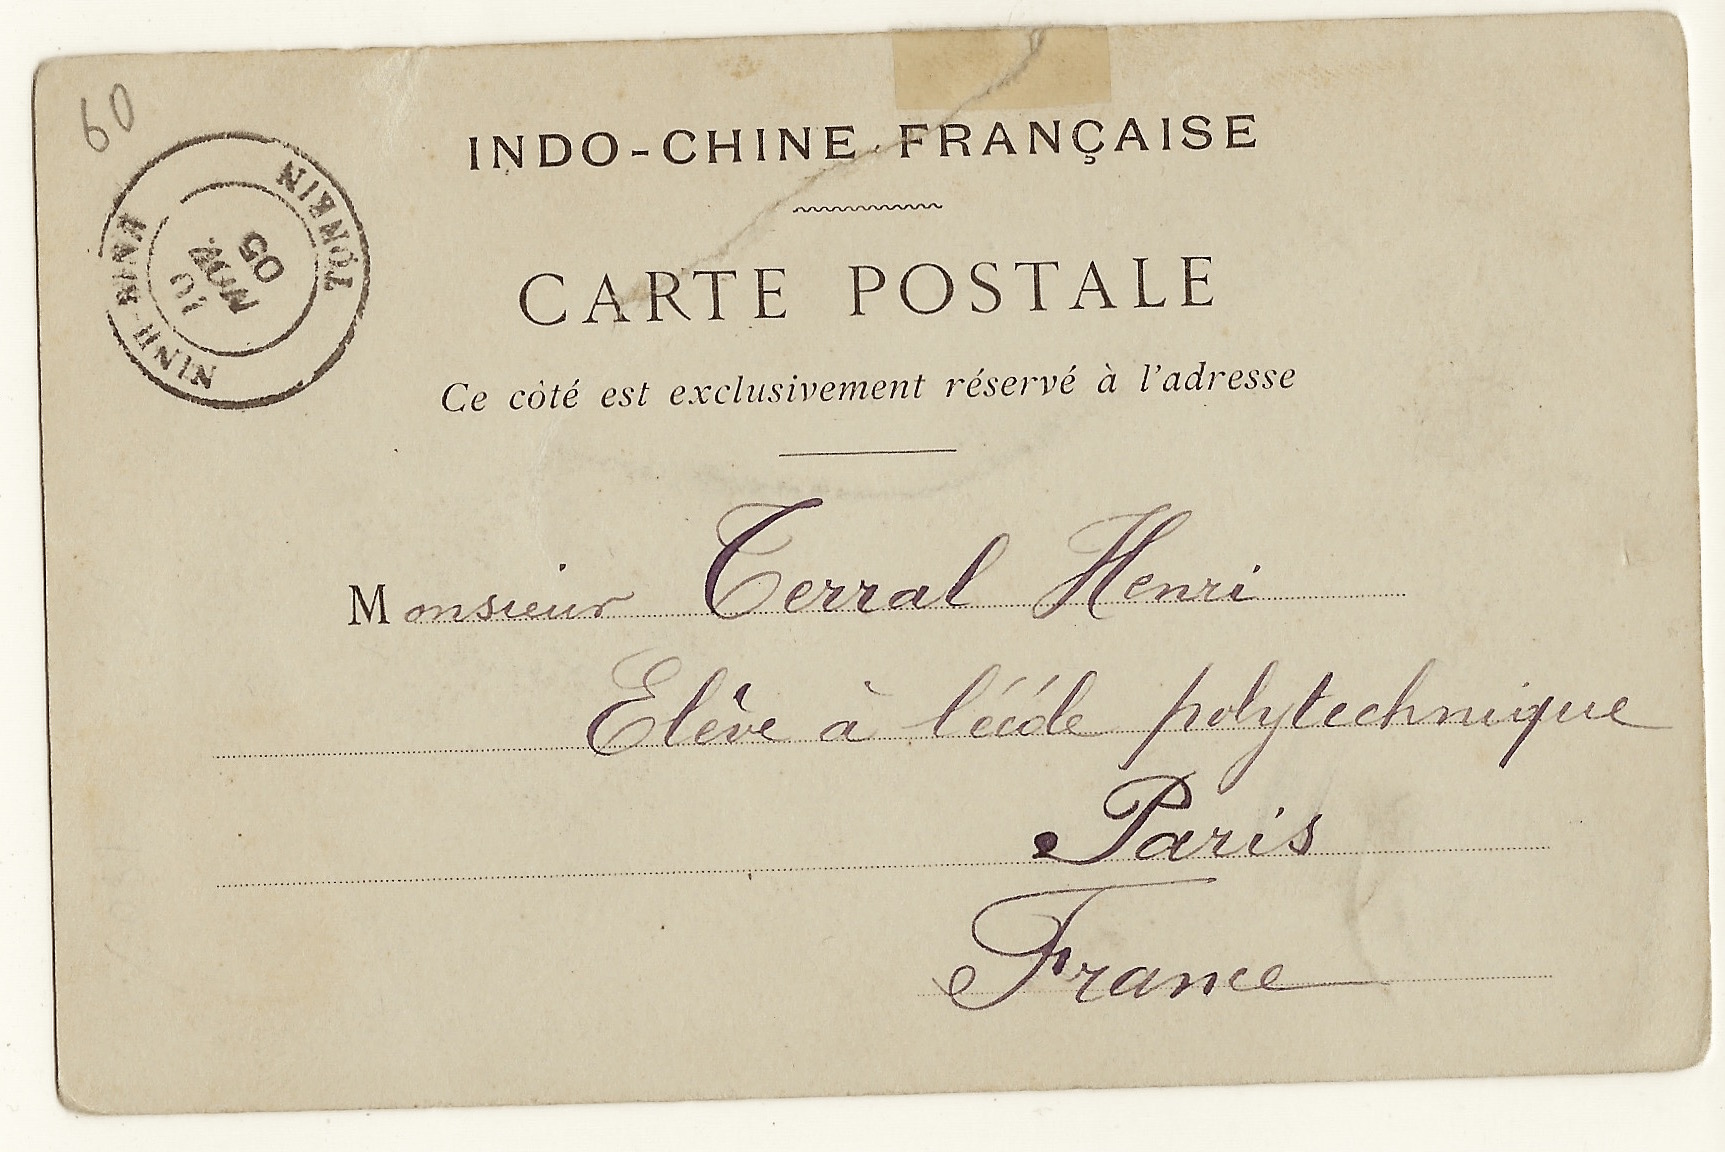 60
INDO-CHINE FRANÇAISE
CARTE POSTALE
Ce côté est exclusivement réservé à l'adresse
NINH-BINH
TONKIN
10
05
Monsieur Terral Henri
Elève à l'école polytechnique
Paris
France